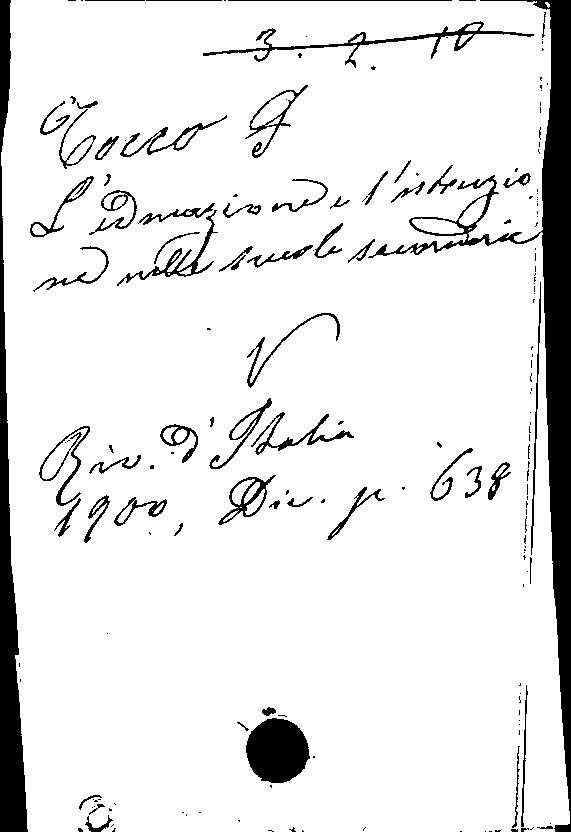 3. 2. 10
Tocco F
L'educazione e l'istruzio
ne nelle scuole secondarie
V
Riv. d'Italia
1900, Dic. p. 638